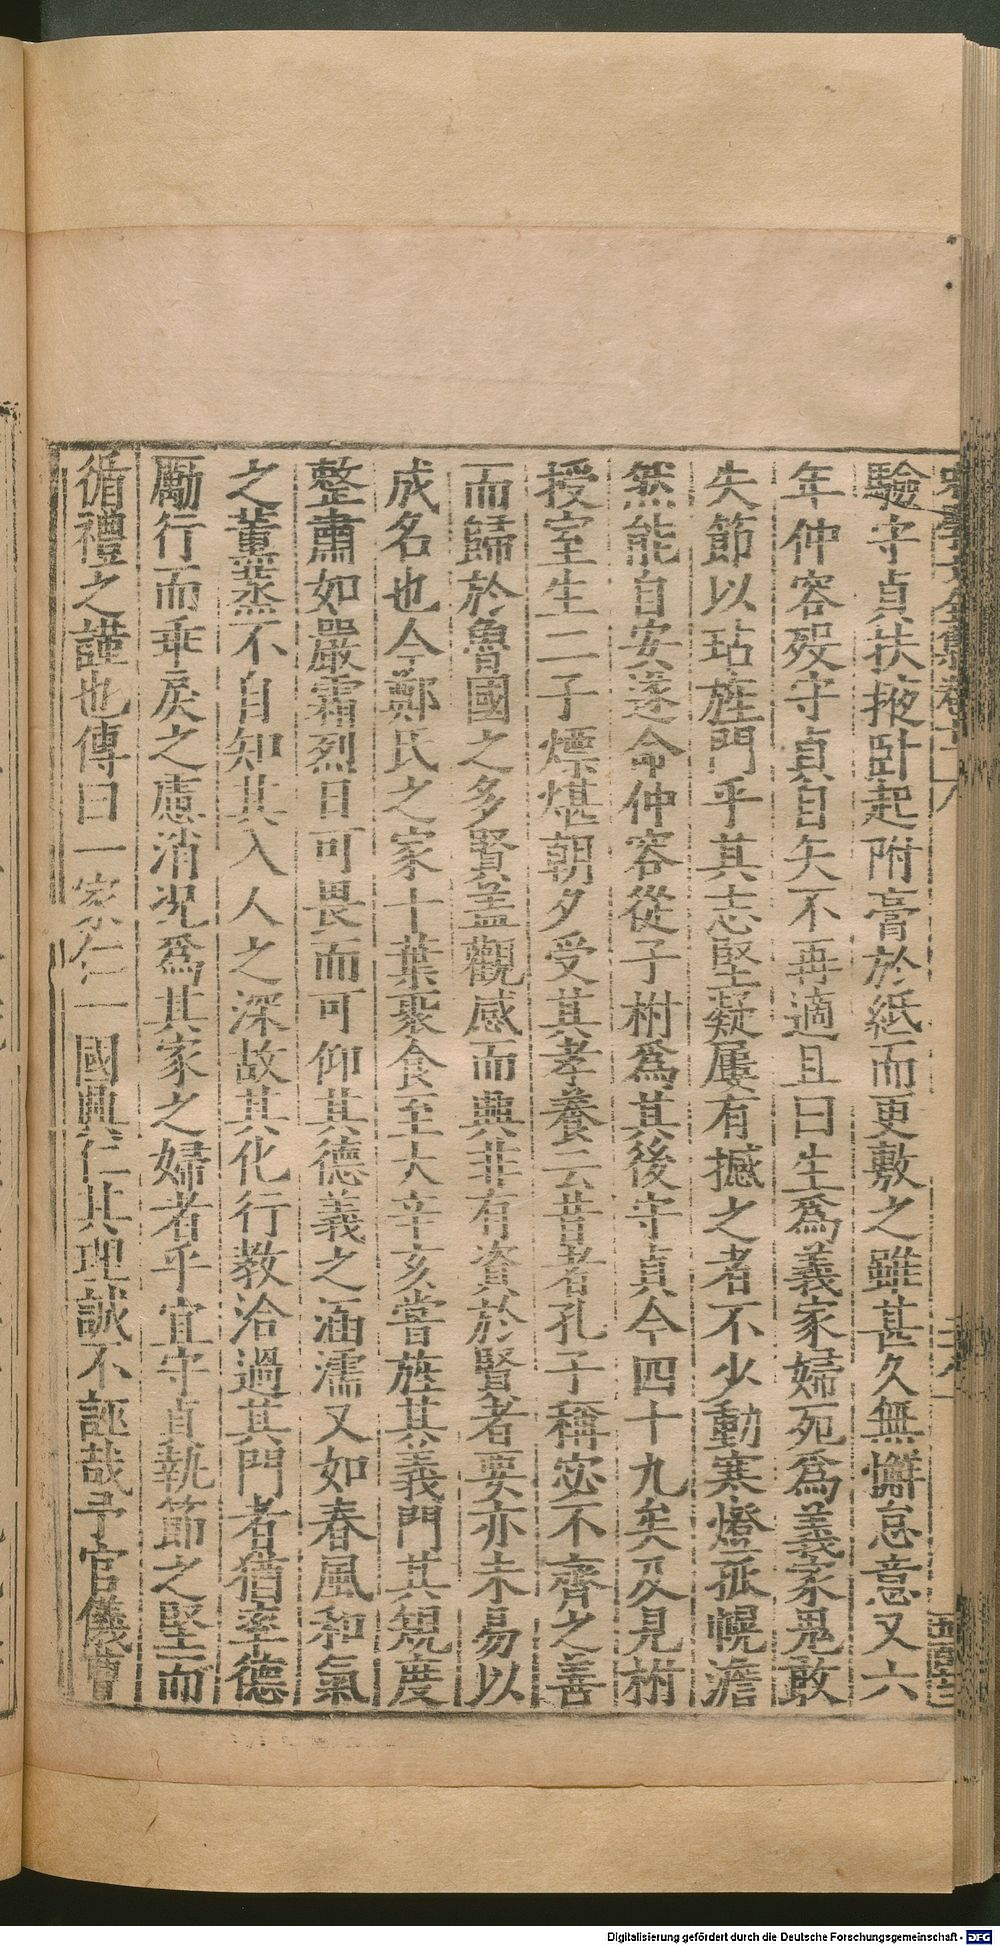 驗守貞扶掖卧起附膏於紙而更敷之雖甚久無懈怠意又六
年仲容殁守貞自矢不再適且曰生爲義家婦死爲義家鬼敢
失節以玷旌門乎其志堅凝屢有撼之者不少動寒燈孤幌澹
然能自安遂命仲容從子樹爲其後守貞今四十九矣及見樹
授室生二子熛煁朝夕受其孝養云昔者孔子稱宓不齊之善
而歸於魯國之多賢盖觀感而興非有資於賢者要亦未易以
成名也今鄭氏之家十葉聚食至大辛亥嘗旌其義門其規度
整肅如嚴霜烈日可畏而可仰其德義之涵濡又如春風和氣
之薰蒸不自知其入人之深故其化行教洽過其門者猶率德
勵行而乖戾之慮消况爲其家之婦者乎宜守貞執節之堅而
循禮之謹也傳曰一家仁一國興仁其理誠不誣哉予官儀曹
Digitalisierung gefördert durch die Deutsche Forschungsgemeinschaft - DFG